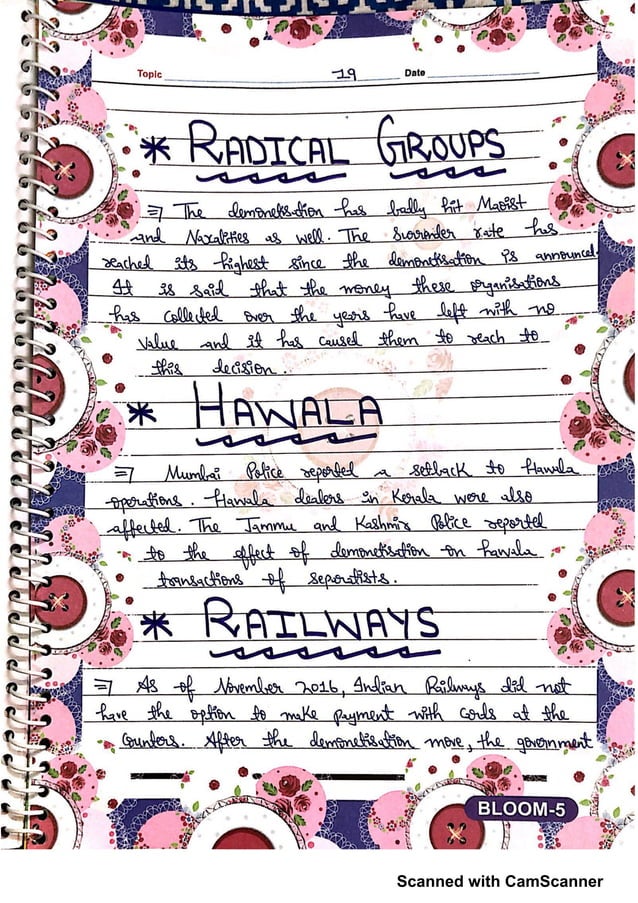 Topic 19 Date
* RADICAL GROUPS
=> The demonetisation has badly hit Maoist
and Naxalities as well. The surrender rate has
reached its highest since the demontisation is announced.
It is said that the money these organisations
has collected over the years have left with no
value and it has caused them to reach to
this decision.
* HAWALA
=> Mumbai Police reported a setback to Hawala
operations. Hawala dealers in Kerala were also
affected. The Jammu and Kashmir Police reported
to the effect of demonetisation on hawala
transactions of separatists.
* RAILWAYS
=> As of November 2016, Indian Railways did not
have the option to make payment with cards at the
counters. After the demonetisation move, the government
BLOOM-5
Scanned with CamScanner